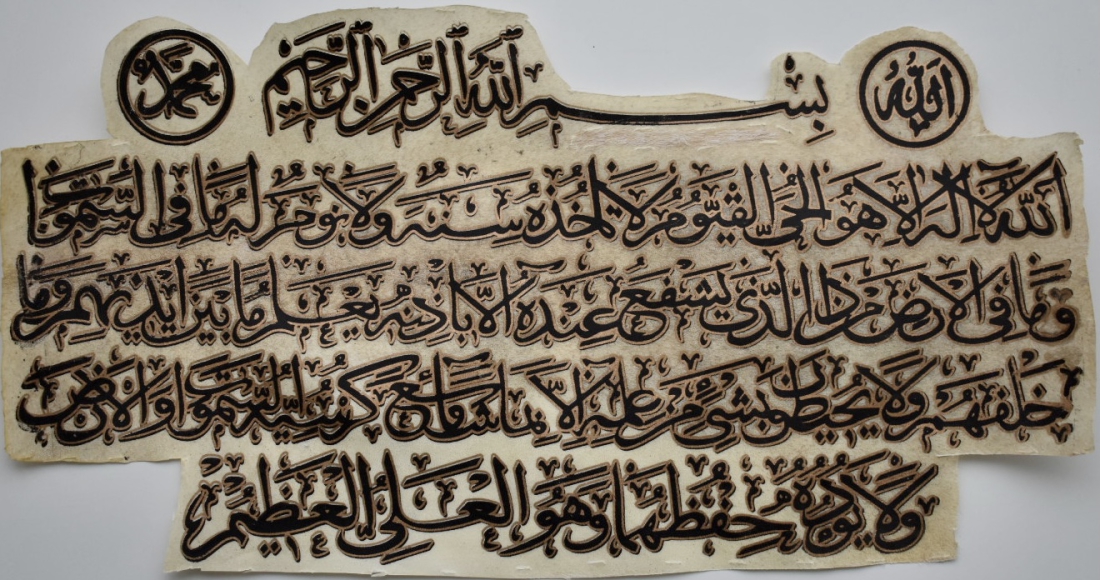 الله بِسْمِ اللهِ الرَّحْمٰنِ الرَّحِيمِ محمد
اللهُ لَا اِلٰهَ اِلَّا هُوَ الْحَيُّ الْقَيُّومُ لَا تَاْخُذُهُ سِنَةٌ وَلَا نَوْمٌ لَهُ مَا فِي السَّمٰوَاتِ
وَمَا فِي الْاَرْضِ مَنْ ذَا الَّذِي يَشْفَعُ عِنْدَهُ اِلَّا بِاِذْنِهِ يَعْلَمُ مَا بَيْنَ اَيْدِيهِمْ وَمَا
خَلْفَهُمْ وَلَا يُحِيطُونَ بِشَيْءٍ مِنْ عِلْمِهِ اِلَّا بِمَا شَاءَ وَسِعَ كُرْسِيُّهُ السَّمٰوَاتِ وَالْاَرْضَ
وَلَا يَؤُدُهُ حِفْظُهُمَا وَهُوَ الْعَلِيُّ الْعَظِيمُ